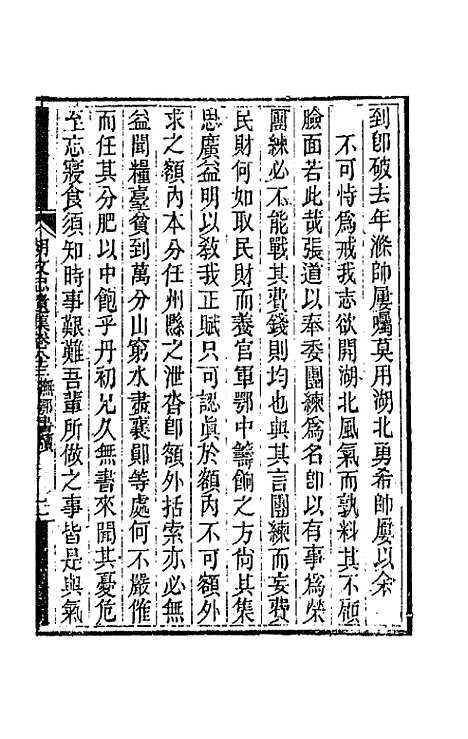 到卽破去年滌帥屢囑莫用湖北勇希帥屢以余
不可恃爲戒我志欲開湖北風氣而孰料其不顧
臉面若此哉張道以奉委團練爲名卽以有事爲榮
團練必不能戰其費錢則均也與其言團練而妄費
民財何如取民財而養官軍鄂中籌餉之方尙其集
思廣益明以敎我正賦只可認眞於額內不可額外
求之額內本分任州縣之泄沓卽額外括索亦必無
益閒糧臺貧到萬分山窮水盡襄鄖等處何不嚴催
而任其分肥以中飽乎丹初兄久無書來聞其憂危
至忘寢食須知時事艱難吾輩所做之事皆是與氣
胡文忠遺集卷六十三 撫鄂書牘